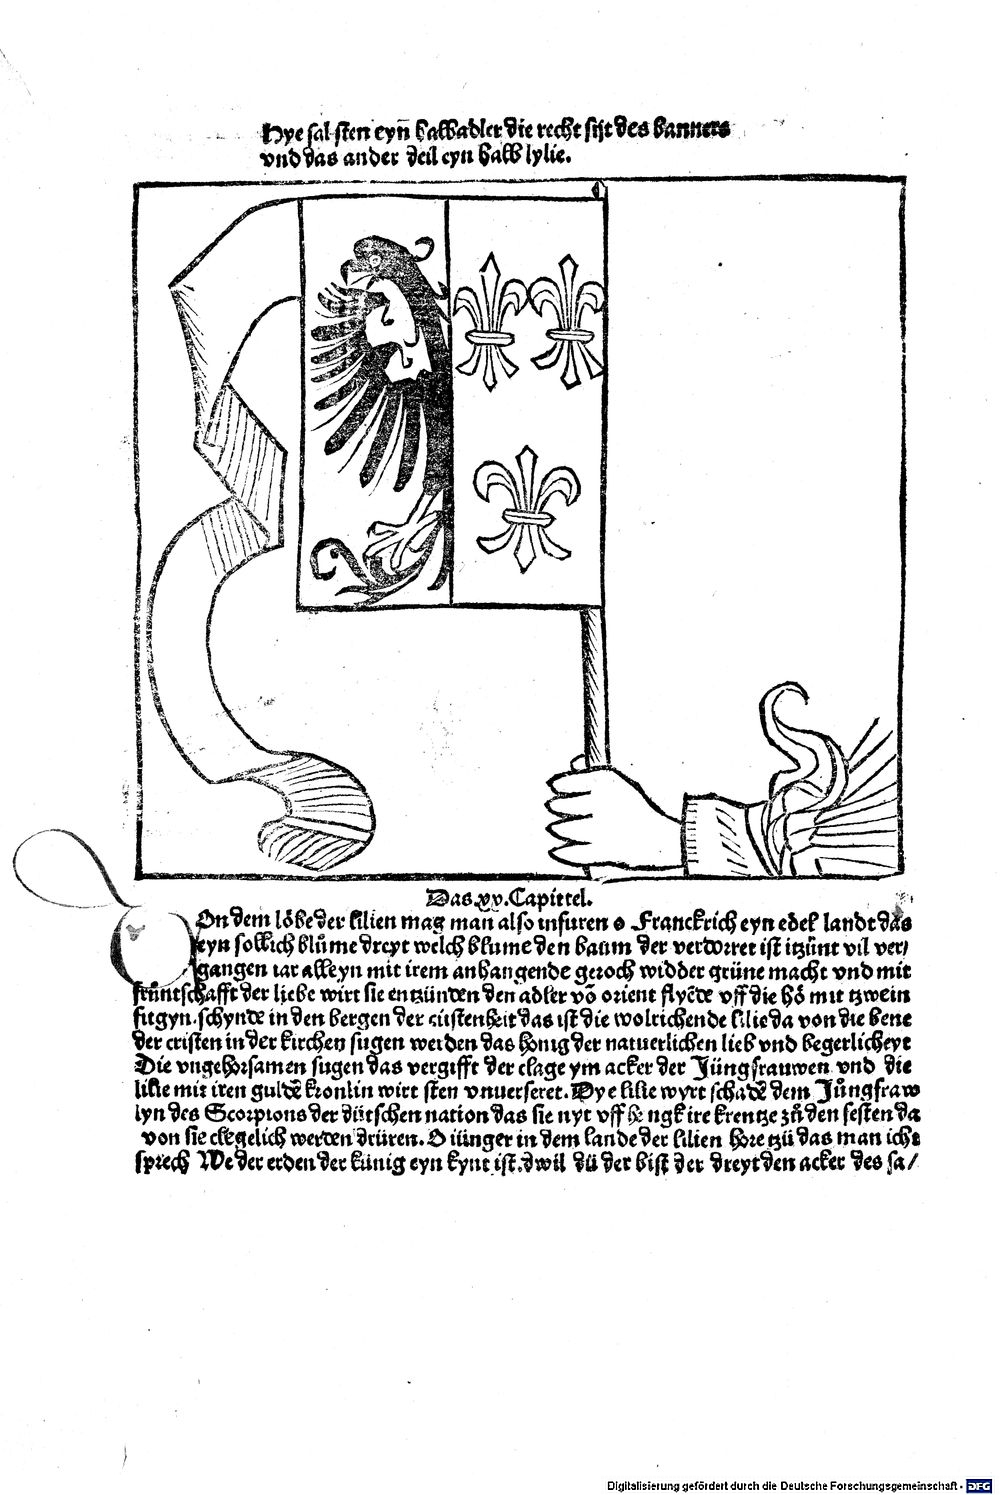 Hye sal sten eyn̄ halbadler die recht sijt des banners
vnd das ander deil eyn halb lylie.
Das xv. Capittel.
On dem löbe der lilien mag man also infuren o Franckrich eyn edel landt das
eyn sollich blůme dreyt welch blume den baum der verdorret ist itzünt vil ver/
gangen iar alleyn mit irem anhangende geroch widder grüne macht vnd mit
früntschafft der liebe wirt sie entzünden den adler vō orient flyēde vff die hō mit tzwein
fitgyn. schynde in den bergen der cristenheit das ist die wolrichende lilie da von die bene
der cristen in der kirchen sugen werden das honig der natuerlichen lieb vnd begerlicheyt
Die vngehorsamen sugen das vergifft der clage ym acker der Jüngfrauwen vnd die
lilie mit iren guldē kronlin wirt sten vnuerseret. Dye lilie wyrt schadē dem Jůngfraw
lyn des Scorpions der dütschen nation das sie nyt vff hengk ire krentze zů den festen da
von sie clegelich werden drüren. O iünger in dem lande der lilien höre tzü das man ich
sprech We der erden der künig eyn kynt ist. dwil dü der bist der dreyt den acker des sa/
Digitalisierung gefördert durch die Deutsche Forschungsgemeinschaft - DFG